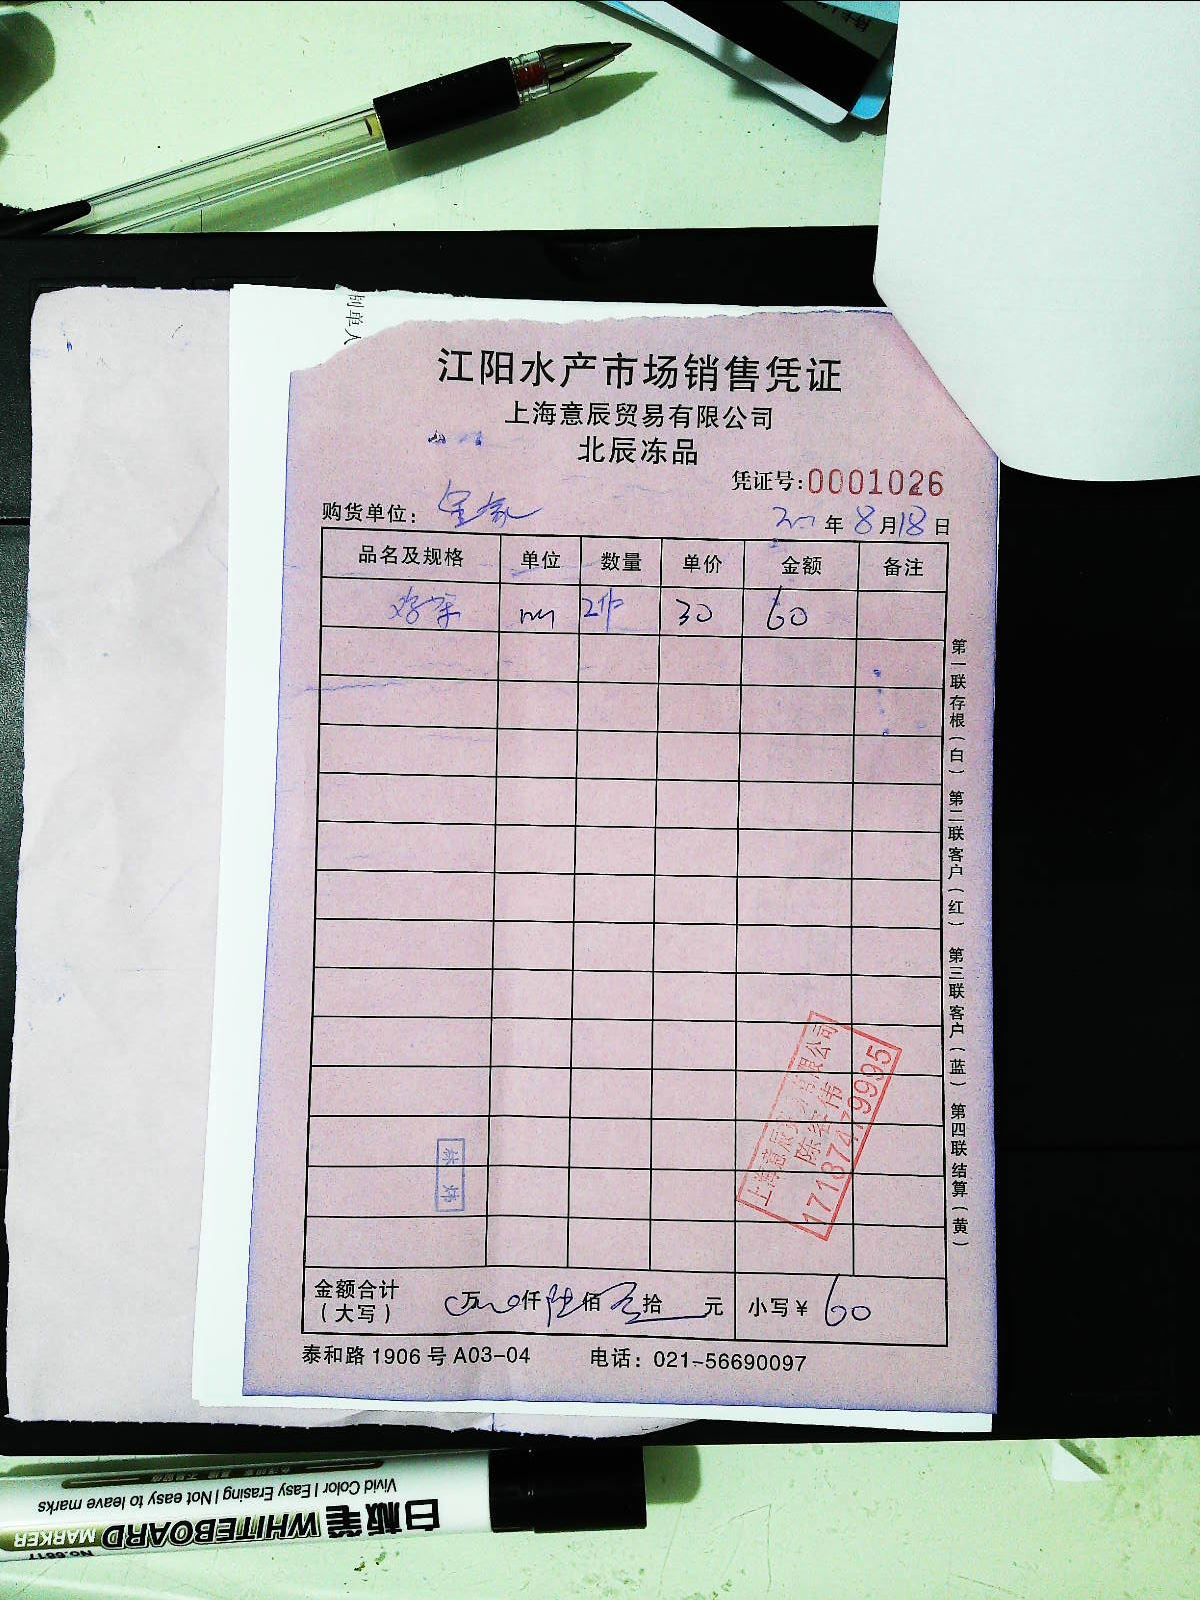 制单人
江阳水产市场销售凭证
上海意辰贸易有限公司
北辰冻品
凭证号:0001026
购货单位:
年 8 月 18 日
品名及规格 单位 数量 单价 金额 备注
2件 30 60
第一联存根(白) 第二联客户(红) 第三联客户(蓝) 第四联结算(黄)
上海意辰贸易有限公司
17187479995
金额合计
(大写)
万 仟 陆 佰 拾 元 小写¥ 60
泰和路1906号A03-04 电话: 021-56690097
白板笔 WHITEBOARD MARKER
Vivid Color | Easy Erasing | Not easy to leave marks
No.6817